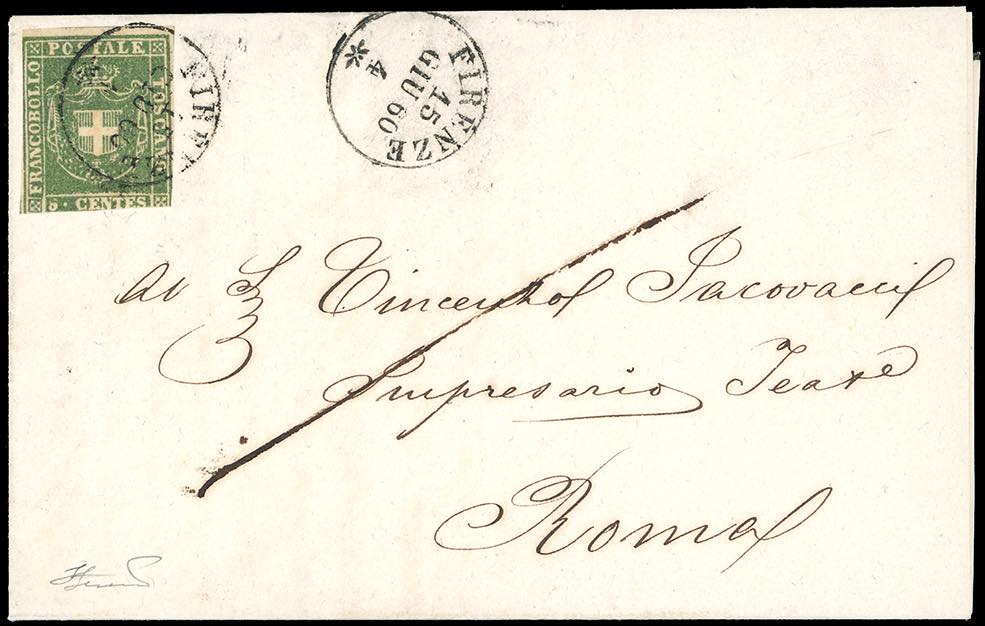 FRANCOBOLLO POSTALE TOSCANO
5 · CENTES
FIRENZE
FIRENZE
15
GIU 60
4
Al S
Vincenzo Jacovacci
Impresario Teatr
Roma